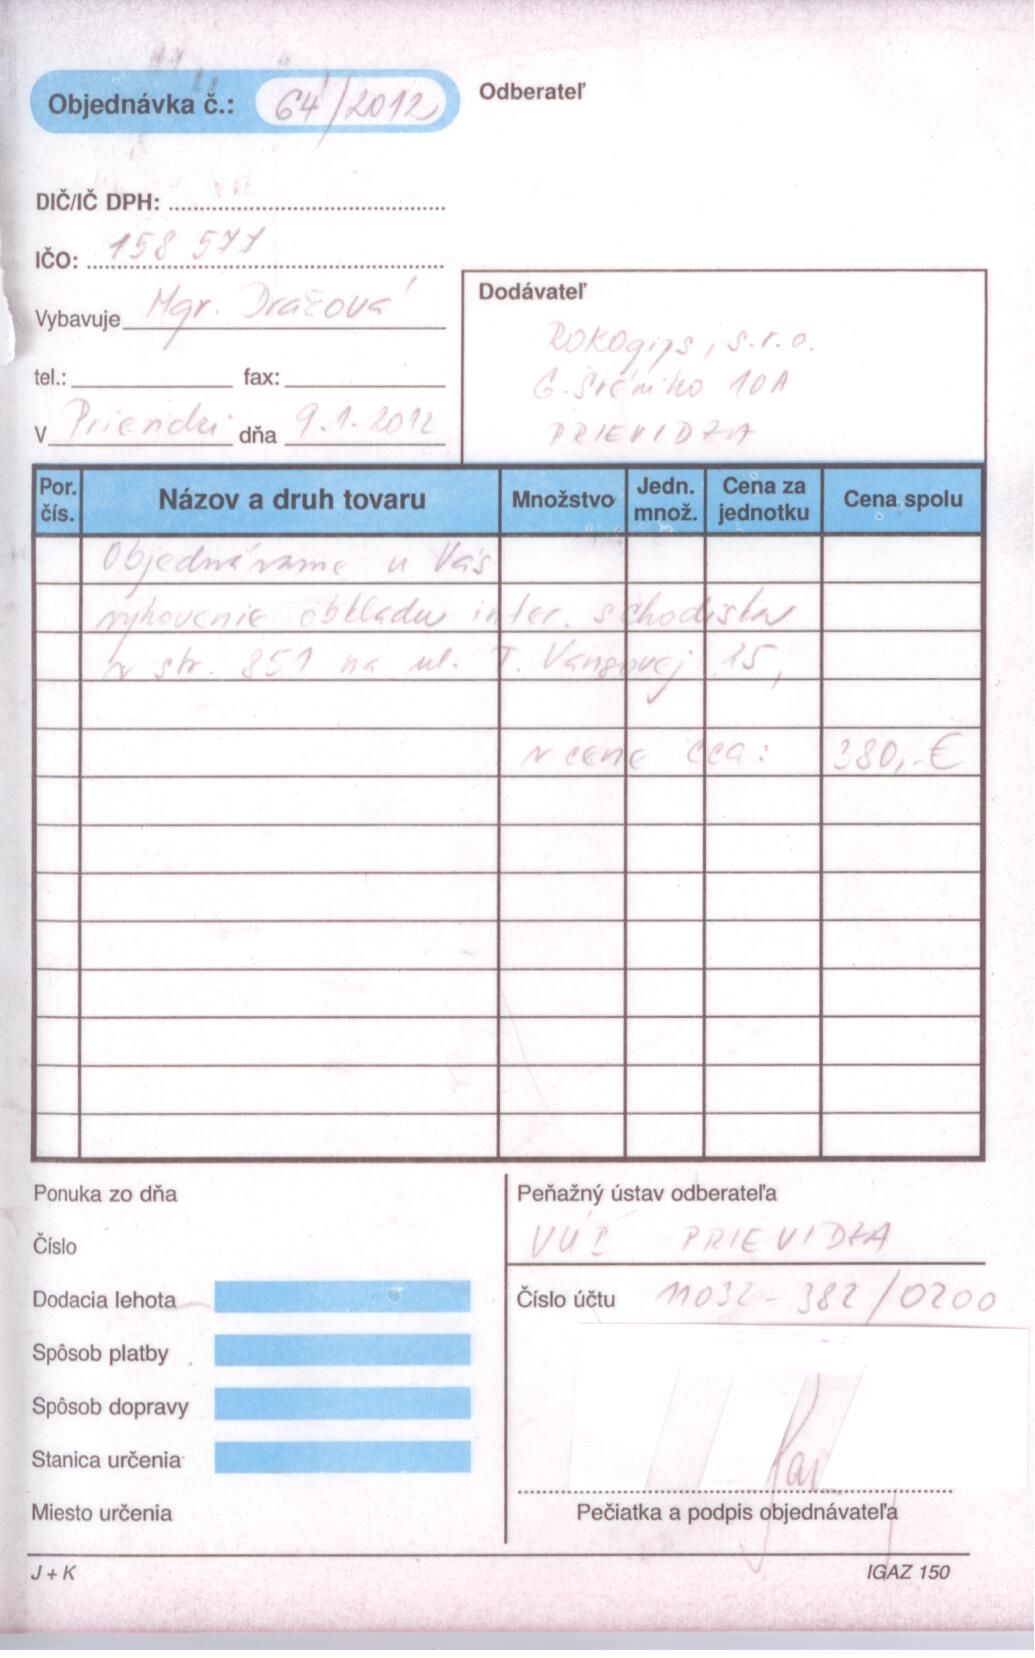 Objednávka č.: 64/2012
Odberateľ
DIČ/IČ DPH:
IČO: 158 577
Vybavuje Mgr. Dračová
tel.: fax:
V Prievidzi dňa 9.1.2012
Dodávateľ
ROKOgips, s.r.o.
10A
PRIEVIDZA
Por. čís. Názov a druh tovaru Množstvo Jedn. množ. Cena za jednotku Cena spolu
Objednávame u Vás
obkladu inter. schodiska
v str. 851 na ul. T. Vansovej 25,
v cene cca: 380,-€
Ponuka zo dňa
Číslo
Dodacia lehota
Spôsob platby
Spôsob dopravy
Stanica určenia
Miesto určenia
Peňažný ústav odberateľa
PRIEVIDZA
Číslo účtu 11032-382/0200
Pečiatka a podpis objednávateľa
J + K
IGAZ 150